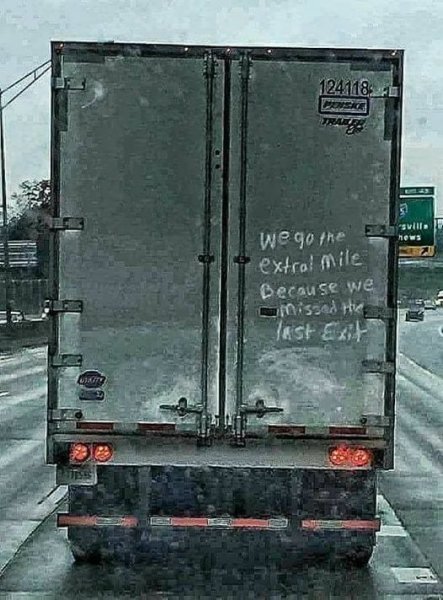 124118
PENSKE
TRAILER
sville
news
We go the
extral mile
Because we
missed the
last Exit
UTILITY